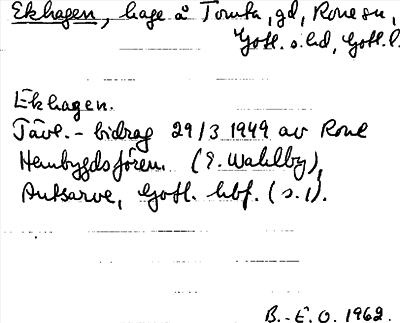 Ekhagen, hage å Tomta, gd, Rone sn,
Gotl. s. hd, Gotl. l.
Ekhagen.
Tävl.-bidrag 29/3 1949 av Rone
Hembygdsfören. (E. Wahlby),
Autsarve, Gotl. hbf. (s. 1).
B.-E. O. 1962.